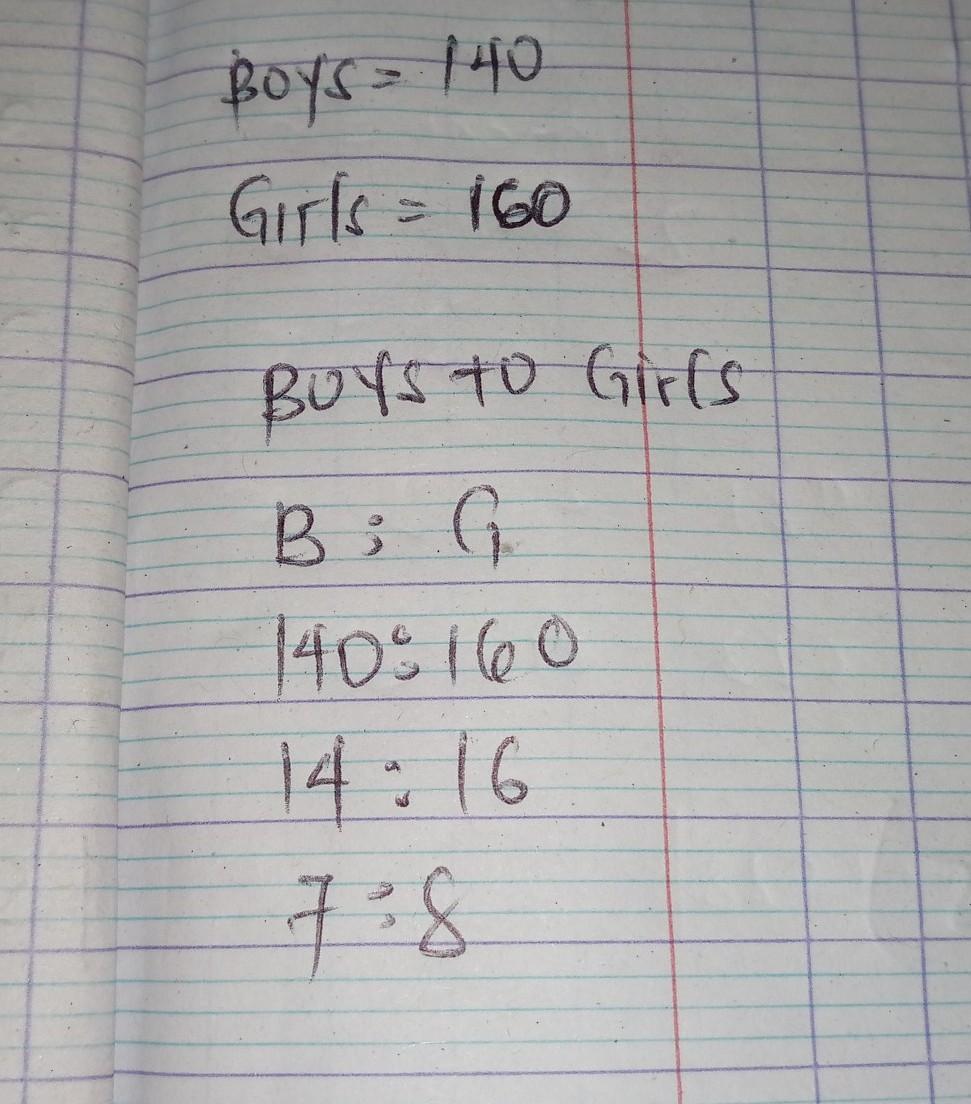 Boys = 140
Girls = 160
Boys to Girls
B : G
140:160
14 : 16
7 : 8